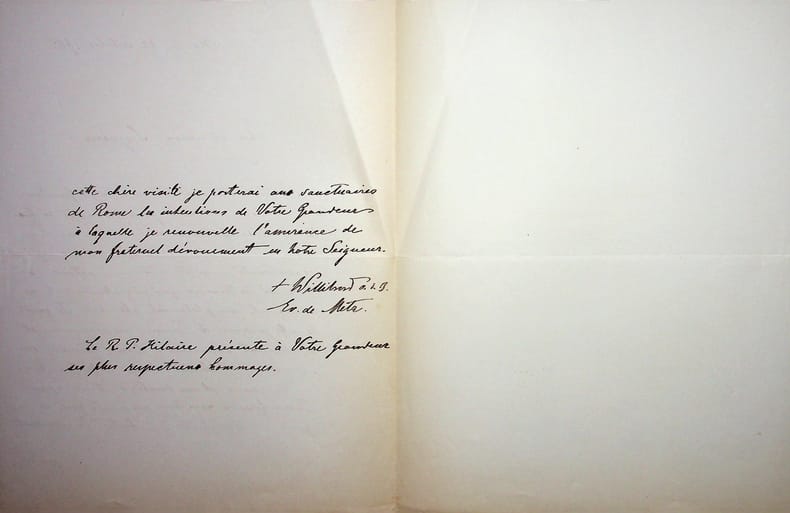 cette chère visite je porterai aux sanctuaires
de Rome les intentions de Votre Grandeur
à laquelle je renouvelle l'assurance de
mon fraternel dévouement en Notre Seigneur.
† Willibrord o.s.b.
Ev. de Metz.
Le R. P. Hilaire présente à Votre Grandeur
ses plus respectueux hommages.